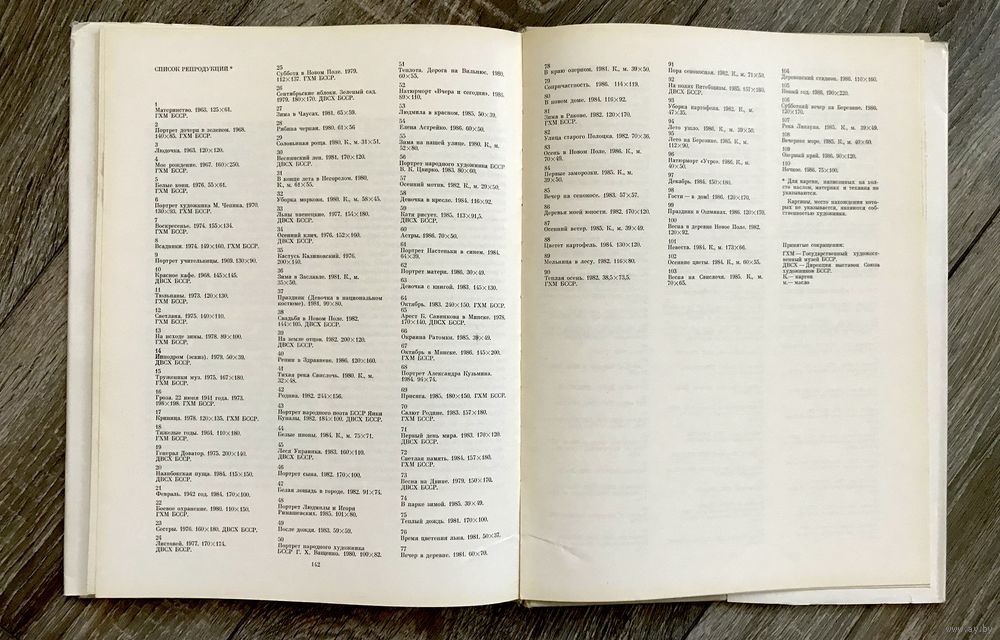 СПИСОК РЕПРОДУКЦИЙ *
1
Материнство. 1963. 125×61.
ГХМ БССР.
2
Портрет дочери в зеленом. 1968.
140×85. ГХМ БССР.
3
Людочка. 1963. 120×120.
4
Мое рождение. 1967. 160×250.
ГХМ БССР.
5
Белые кони. 1976. 55×64.
ГХМ БССР.
6
Портрет художника М. Чепика. 1970.
130×93. ГХМ БССР.
7
Воскресенье. 1974. 155×134.
ГХМ БССР.
8
Всадники. 1974. 149×160. ГХМ БССР.
9
Портрет учительницы. 1969. 130×90.
10
Красное кафе. 1968. 145×145.
ДВСХ БССР.
11
Тюльпаны. 1973. 120×130.
ГХМ БССР.
12
Светлана. 1975. 140×110.
ГХМ БССР.
13
На исходе зимы. 1978. 89×100.
ГХМ БССР.
14
Ипподром (эскиз). 1979. 50×39.
ДВСХ БССР.
15
Труженики муз. 1975. 167×180.
ГХМ БССР.
16
Гроза. 22 июня 1941 года. 1973.
198×198. ГХМ БССР.
17
Криница. 1978. 120×135. ГХМ БССР.
18
Тяжелые годы. 1964. 110×180.
ГХМ БССР.
19
Генерал Доватор. 1975. 200×140.
ДВСХ БССР.
20
Налибокская пуща. 1984. 115×150.
ДВСХ БССР.
21
Февраль. 1942 год. 1984. 170×100.
22
Боевое охранение. 1980. 110×150.
ГХМ БССР.
23
Сестры. 1976. 160×180. ДВСХ БССР.
24
Листовей. 1977. 170×174.
ДВСХ БССР.
25
Суббота в Новом Поле. 1979.
112×137. ГХМ БССР.
26
Сентябрьские яблоки. Зеленый сад.
1979. 180×170. ДВСХ БССР.
27
Зима в Чаусах. 1981. 65×59.
28
Рябина черная. 1980. 61×56
29
Соловьиная роща. 1980. К., м. 31×51.
30
Весенний лен. 1981. 170×120.
ДВСХ БССР.
31
В конце лета в Негорелом. 1980.
К., м. 61×55.
32
Уборка моркови. 1980. К., м. 58×45.
33
Льны чаченецкие. 1977. 154×180.
ДВСХ БССР.
34
Осенний клич. 1976. 152×160.
ДВСХ БССР.
35
Кастусь Калиновский. 1976.
200×140.
36
Зима в Заславле. 1981. К., м.
35×50.
37
Праздник (Девочка в национальном
костюме). 1981. 99×80.
38
Свадьба в Новом Поле. 1982.
144×105. ДВСХ БССР.
39
На земле отцов. 1982. 200×120.
ДВСХ БССР.
40
Репин в Здравневе. 1986. 120×160.
41
Тихая река Свислочь. 1980. К., м.
32×48.
42
Родина. 1982. 244×156.
43
Портрет народного поэта БССР Янки
Купалы. 1982. 184×100. ДВСХ БССР.
44
Белые пионы. 1984. К., м. 75×71.
45
Леся Украинка. 1983. 160×110.
ДВСХ БССР.
46
Портрет сына. 1982. 170×100.
47
Белая лошадь в городе. 1982. 91×74.
48
Портрет Людмилы и Игоря
Римашевских. 1985. 101×80.
49
После дождя. 1983. 59×59.
50
Портрет народного художника
БССР Г. Х. Ващенко. 1980. 100×82.
142
51
Теплота. Дорога на Вильнюс. 1980.
60×55.
52
Натюрморт «Вчера и сегодня». 1986.
89×110.
53
Людмила в красном. 1985. 50×39.
54
Елена Астрейко. 1986. 60×50.
55
Зима на нашей улице. 1980. К., м.
52×80.
56
Портрет народного художника БССР
В. К. Цвирко. 1983. 80×60.
57
Осенний мотив. 1982. К., м. 29×50.
58
Девочка в кресле. 1984. 116×92.
59
Катя рисует. 1985. 113×91,5.
ДВСХ БССР.
60
Астры. 1986. 70×50.
61
Портрет Настеньки в синем. 1984.
64×39.
62
Портрет матери. 1986. 30×49.
63
Девочка с книгой. 1983. 145×130.
64
Октябрь. 1983. 240×150. ГХМ БССР.
65
Арест Б. Савинкова в Минске. 1978.
170×140. ДВСХ БССР.
66
Окраина Ратомки. 1985. 39×49.
67
Октябрь в Минске. 1986. 145×200.
ГХМ БССР.
68
Портрет Александра Кузьмина.
1984. 94×74.
69
Присяга. 1985. 180×150. ГХМ БССР.
70
Салют Родине. 1983. 157×180.
ГХМ БССР.
71
Первый день мира. 1983. 170×120.
ДВСХ БССР.
72
Светлая память. 1984. 157×180.
ГХМ БССР.
73
Весна на Двине. 1979. 150×170.
ДВСХ БССР.
74
В парке зимой. 1985. 39×49.
75
Теплый дождь. 1981. 170×100.
76
Время цветения льна. 1981. 50×37.
77
Вечер в деревне. 1981. 60×70.
78
В краю озерном. 1981. К., м. 39×50.
79
Сопричастность. 1986. 114×119.
80
В новом доме. 1984. 116×92.
81
Зима в Ракове. 1982. 120×170.
ГХМ БССР.
82
Улица старого Полоцка. 1982. 70×36.
83
Осень в Новом Поле. 1986. К., м.
70×48.
84
Первые заморозки. 1985. К., м.
39×50.
85
Вечер на сенокосе. 1983. 57×57.
86
Деревья моей юности. 1982. 170×120.
87
Осенний ветер. 1985. К., м. 39×49.
88
Цветет картофель. 1984. 130×120.
89
Мельница в лесу. 1982. 116×80.
90
Теплая осень. 1982. 38,5×73,5.
ГХМ БССР.
91
Пора сенокосная. 1982. К., м. 71×50.
92
На полях Витебщины. 1985. 157×180.
ДВСХ БССР.
93
Уборка картофеля. 1982. К., м.
47×35.
94
Лето ушло. 1986. К., м. 39×50.
95
Лето на Березине. 1985. К., м.
112×90.
96
Натюрморт «Утро». 1986. К., м.
40×50.
97
Декабрь. 1984. 150×180.
98
Гости — в дом! 1986. 120×170.
99
Праздник в Ошмянах. 1986. 120×170.
100
Весна в деревне Новое Поле. 1982.
120×92.
101
Невеста. 1984. К., м. 173×66.
102
Осенние цветы. 1984. К., м. 60×35.
103
Весна на Свислочи. 1985. К., м.
70×65.
104
Деревенский стадион. 1986. 110×160.
105
Новый год. 1986. 190×220.
106
Субботний вечер на Березине. 1980.
120×170.
107
Река Лекарка. 1985. К., м. 39×49.
108
Вечернее море. 1985. К., м. 40×60.
109
Озерный край. 1986. 90×120.
110
Ночное. 1986. 75×100.
* Для картин, написанных на хол-
сте маслом, материал и техника не
указываются.
Картины, место нахождения кото-
рых не указывается, являются соб-
ственностью художника.
Принятые сокращения:
ГХМ — Государственный художест-
венный музей БССР,
ДВСХ — Дирекция выставок Союза
художников БССР.
К. — картон
м. — масло
www.ay.by